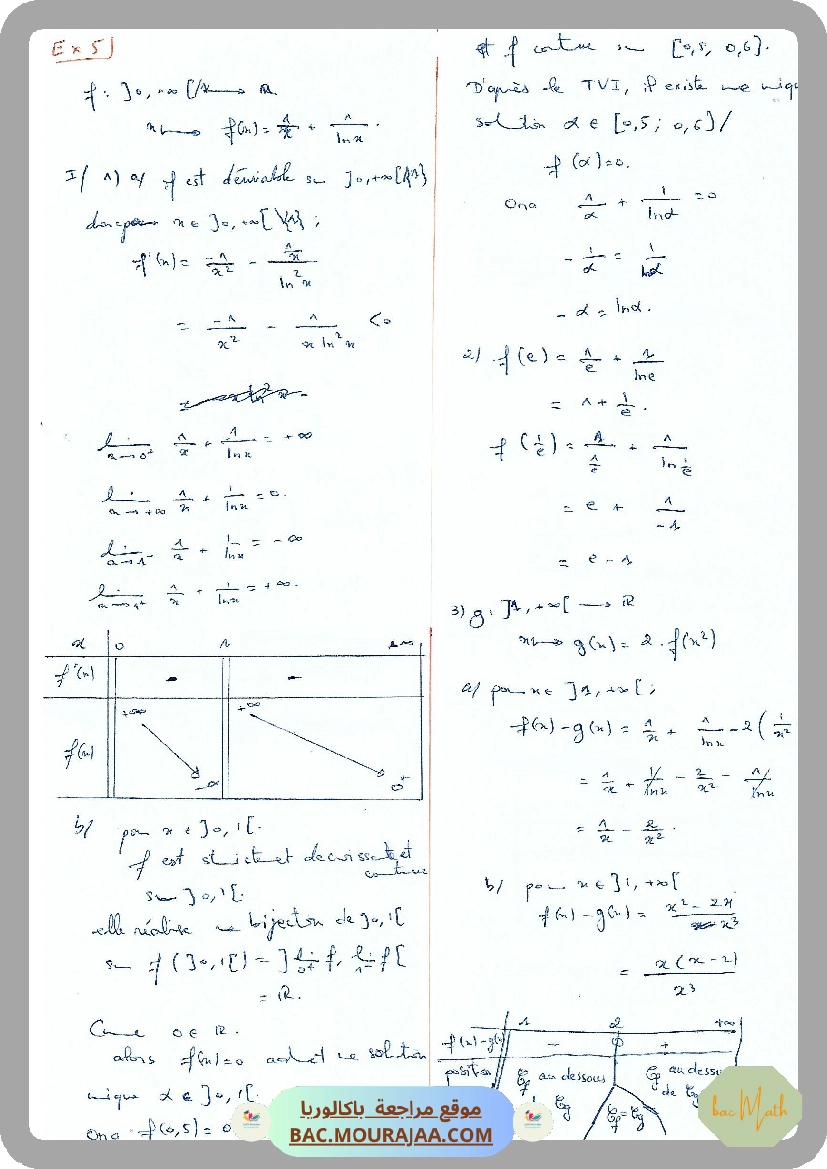 Ex 5
f : ]0, +∞[\{1} → ℝ
x ↦ f(x) = 1/x + 1/ln x.
I/ 1) a/ f est dérivable sur ]0, +∞[\{1}
donc pour x ∈ ]0, +∞[\{1} ;
f'(x) = -1/x² - (1/x)/ln²x
= -1/x² - 1/(x ln²x) < 0
lim x→0⁺ 1/x + 1/ln x = +∞
lim x→+∞ 1/x + 1/ln x = 0.
lim x→1⁻ 1/x + 1/ln x = -∞
lim x→1⁺ 1/x + 1/ln x = +∞.
x 0 1 +∞
f'(x) - -
f(x) +∞ -∞ +∞ 0⁺
b/ pour x ∈ ]0, 1[.
f est strictet decroissante et
continue
sur ]0, 1[.
elle réalise une bijection de ]0, 1[
sur f(]0, 1[) = ]lim 0⁺ f, lim 1⁻ f[
= ℝ.
Comme 0 ∈ ℝ.
alors f(x) = 0 admet une solution
unique α ∈ ]0, 1[.
Ona f(0,5) = 0
et f continue sur [0,5, 0,6].
D'après le TVI, il existe une uniq
solution α ∈ [0,5 ; 0,6] /
f(α) = 0.
Ona 1/α + 1/lnα = 0
- 1/α = 1/lnα
- α = lnα.
2) f(e) = 1/e + 1/ln e
= 1 + 1/e.
f(1/e) = 1/(1/e) + 1/ln(1/e)
= e + 1/-1
= e - 1
3) g : ]1, +∞[ → ℝ
x ↦ g(x) = 2 . f(x²)
a/ pour x ∈ ]1, +∞[ ;
f(x) - g(x) = 1/x + 1/ln x - 2 ( 1/x²
= 1/x + 1/ln x - 2/x² - 1/ln x
= 1/x - 2/x² .
b/ pour x ∈ ]1, +∞[
f(x) - g(x) = (x² - 2x)/x³
= x(x - 2)/x³
1 2 +∞
f(x) - g(x) - 0 +
position 𝒞f au dessous 𝒞f au dessu
𝒞g 𝒞f = 𝒞g de 𝒞g
موقع مراجعة باكالوريا
BAC.MOURAJAA.COM
bac Math